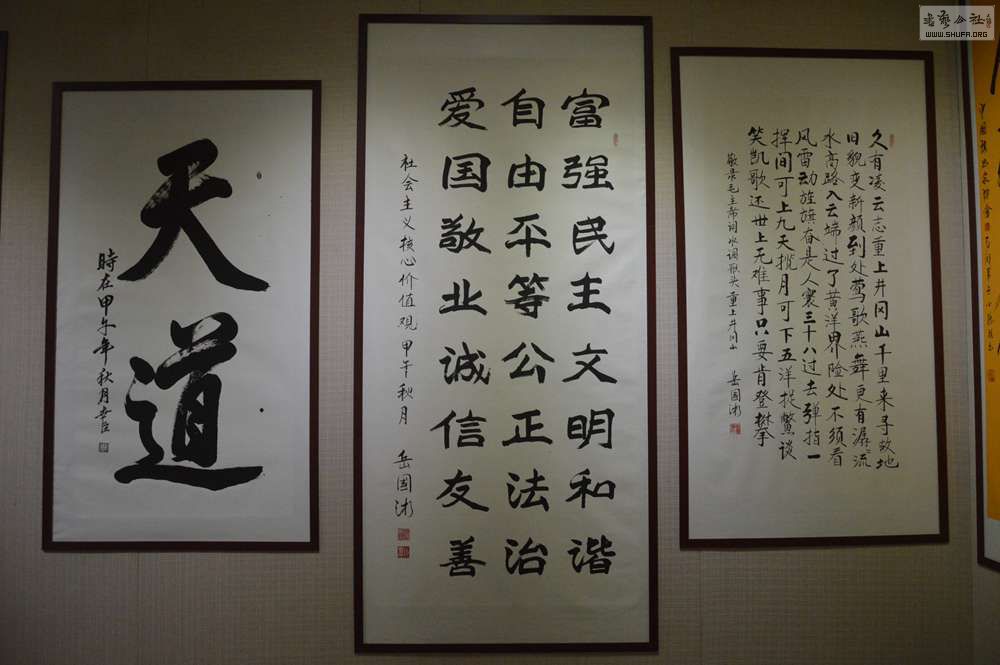 天道
時在甲午年秋月
富强民主文明和谐
自由平等公正法治
爱国敬业诚信友善
社会主义核心价值观甲午秋月 岳國
久有凌云志重上井冈山千里来寻故地
旧貌变新颜到处莺歌燕舞更有潺流
水高路入云端过了黄洋界险处不须看
风雷动旌旗奋是人寰三十八过去弹指一
挥间可上九天揽月可下五洋捉鳖谈
笑凯歌还世上无难事只要肯登攀
敬录毛主席词水调歌头重上井冈山 岳國
书艺公社
WWW.SHUFA.ORG